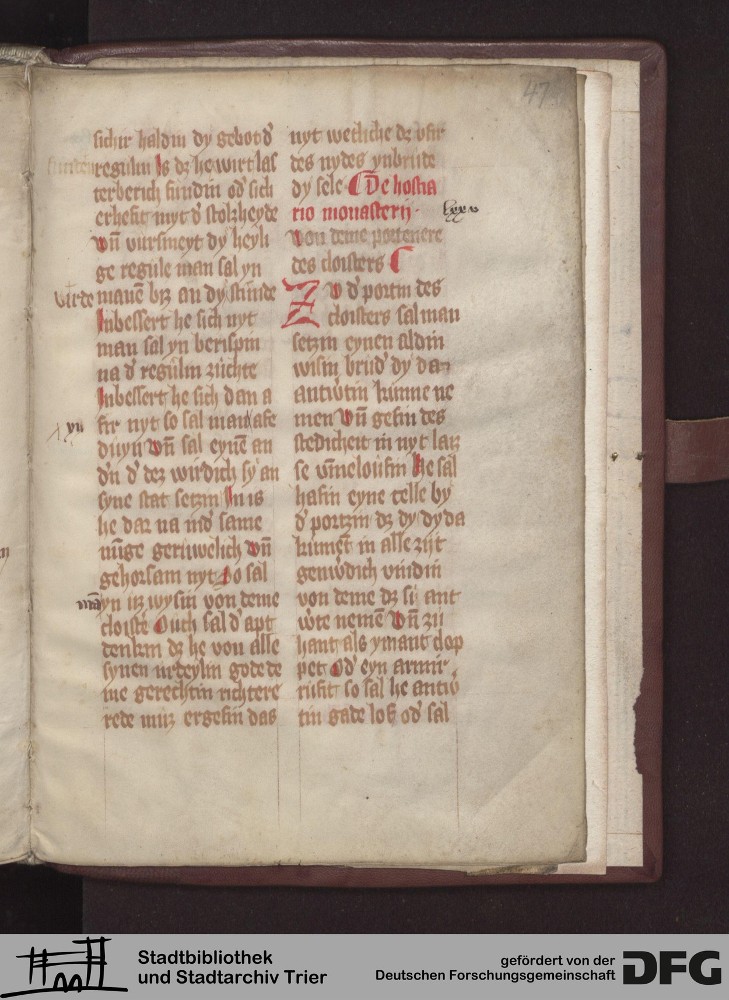 47
sichir haldin dy gebot d'
regulin Is dz he wirt las
terberich fundin od' sich
erhefit myt d' stolzheyde
vn̄ vursmeyt dy heyli
ge regule man sal yn
virde manē biz an dy stunde
Inbessert he sich nyt
man sal yn berispin
na d' regulin zuchte
Inbessert he sich dan a
fir nyt so sal man
vn̄ sal eynē an
d'n d' dez wirdich sy an
syne stat setzin In is
he dar na
gehorsam nyt so sal
yn uz wysin von deme
cloist' Ouch sal d' apt
denkin dz he von alle
synen urdeylin gode de
me gerechtin richtere
rede muz ergebin das
nyt wetliche dz vür
des nydes ynbrūde
dy sele De hostia
rio monasterij lxvi
von deme portenere
des cloisters
Zv d' portin des
cloisters sal man
setzin eynen aldin
wisin brud' dy da
antw'tin kunne ne
men vn̄ gebin des
stedicheit in nyt laz
se vm̄eloufin he sal
habin eyne celle by
d' portzin dz dy dy da
kumēt in alle zijt
genw'dich vindin
von deme dz si ant
w'te nemē vn̄ zu
hant als ymant clop
pet od' eyn armir
rufit so sal he antw'
tin gade lob od' sal
Stadtbibliothek
und Stadtarchiv Trier
gefördert von der
Deutschen Forschungsgemeinschaft
DFG